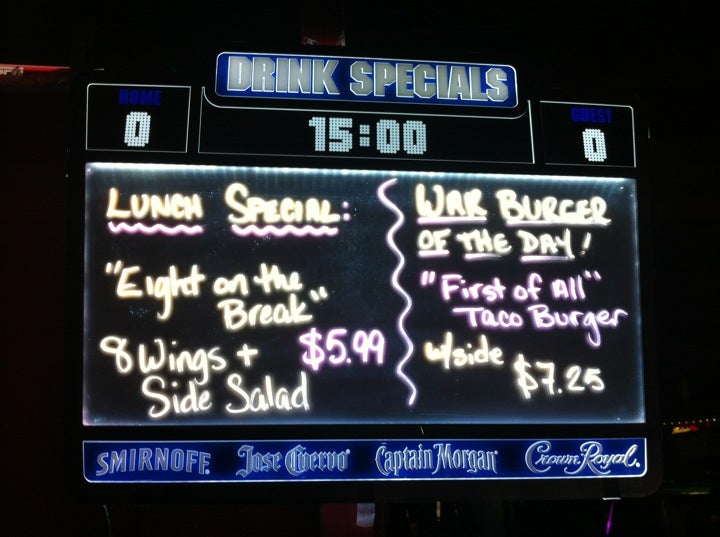 DRINK SPECIALS
HOME
0
15:00
GUEST
0
LUNCH SPECIAL:
"Eight on the
Break"
8 Wings + $5.99
Side Salad
WAR BURGER
OF THE DAY!
"First of All"
Taco Burger
w/side
$7.25
SMIRNOFF Jose Cuervo Captain Morgan Crown Royal